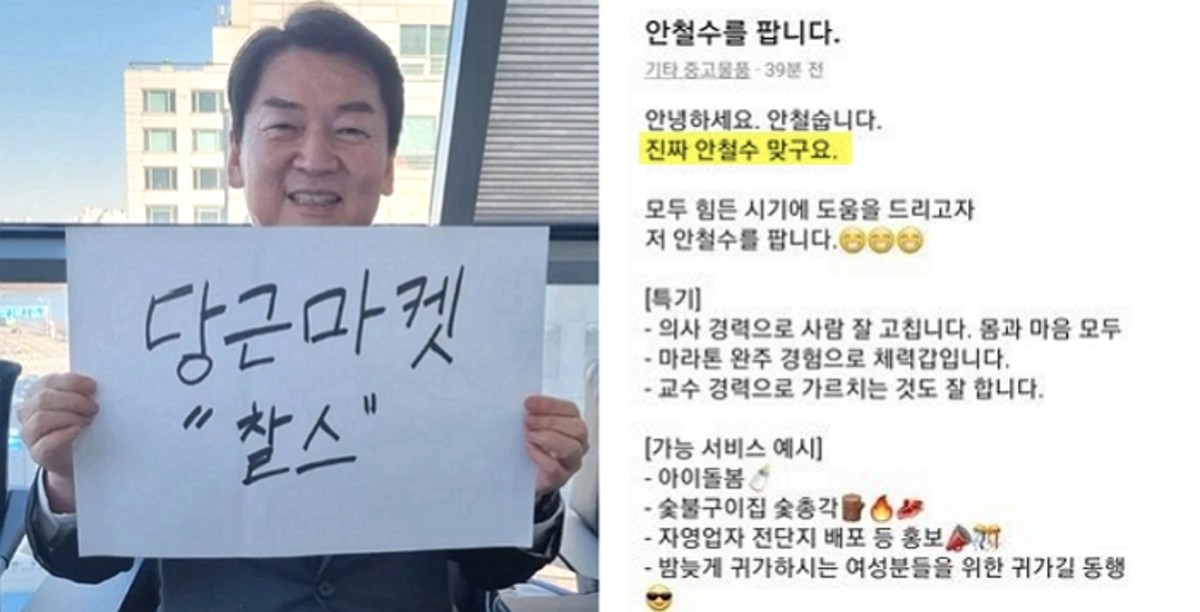 당근마켓
"찰스"
안철수를 팝니다.
기타 중고물품 - 39분 전
안녕하세요. 안철숩니다.
진짜 안철수 맞구요.
모두 힘든 시기에 도움을 드리고자
저 안철수를 팝니다.😁😁😁
[특기]
- 의사 경력으로 사람 잘 고칩니다. 몸과 마음 모두
- 마라톤 완주 경험으로 체력갑입니다.
- 교수 경력으로 가르치는 것도 잘 합니다.
[가능 서비스 예시]
- 아이돌봄🍼
- 숯불구이집 숯총각🪵🔥🥓
- 자영업자 전단지 배포 등 홍보📣🎊
- 밤늦게 귀가하시는 여성분들을 위한 귀가길 동행
😎